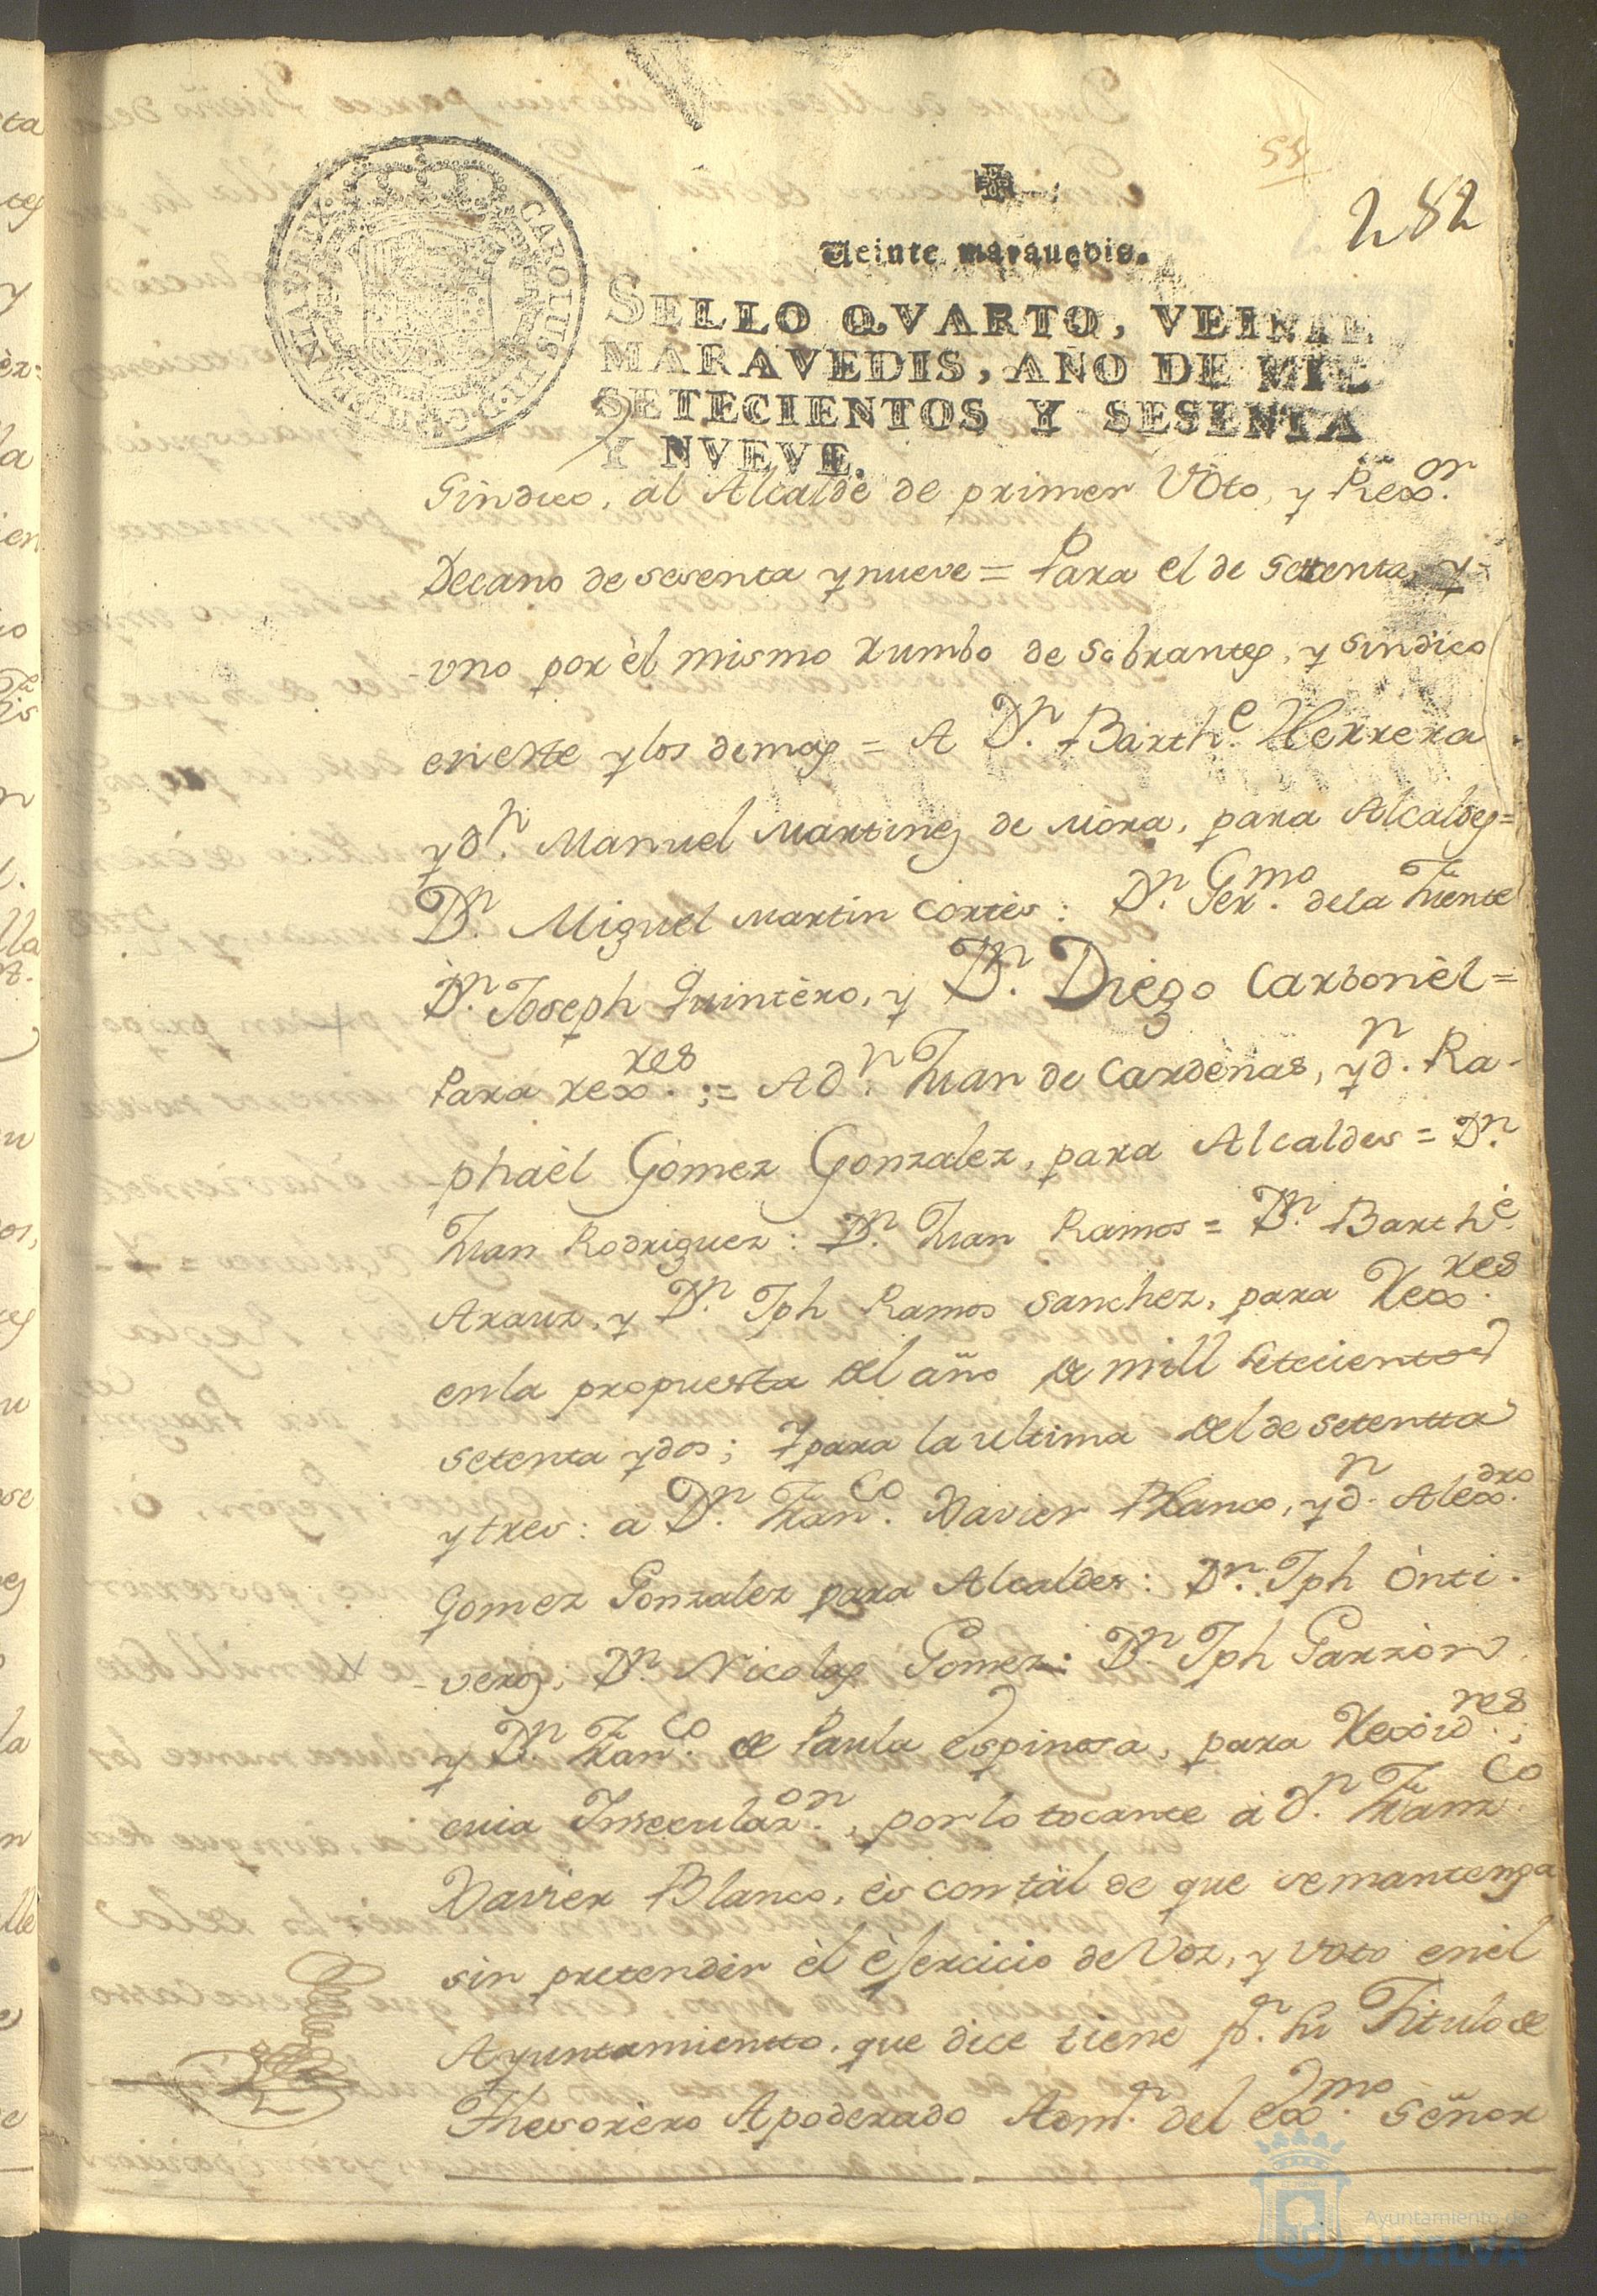 55
282
Veinte marauedis.
SELLO QVARTO, VEINTE
MARAVEDIS, AÑO DE MIL
SETECIENTOS Y SESENTA
Y NVEVE.
CAROLUS III D G HISPANIAR REX
Sindico, al Alcalde de primer Voto, y Rexor.
Decano de sesenta y nueve = Para el de setenta, y
uno por èl mismo rumbo de Sobrantes, y sindico
en este y los demas = A Dn. Barthe. Herrera
y dn. Manuel Martines de Mora, para Alcaldes =
Dn. Miguel Martin Cortès: Dn. Germo. de la Fuente
Dn. Joseph Quintèro, y Dn. Diego Carbonèl =
Para rexres. := A dn. Juan de Cardenas, y dn. Ra-
-phaèl Gomez Gonzalez, para Alcaldes = Dn.
Juan Rodriguez: Dn. Juan Ramos = Dn. Barthe.
Arauz, y Dn. Jph Ramos Sanchez, para Rexres.
en la propuesta del año de mill setecientos
setenta y dos; Y para la ultima del de setentta
y tres: a Dn. Franco. Xavier Blanco, y dn. Alexdro.
Gomez Gonzalez para Alcaldes: Dn. Jph Onti-
-veros; Dn. Nicolas Gomez: Dn. Jph Garzòn
y Dn. Franco. de Paula Espinosa, para Rexidres.;
cuia Inseculazon., por lo tocante à Dn. Franco.
Xavier Blanco, ès con tàl de que se mantenga
sin pretender èl èjercicio de Voz, y voto en èl
Ayuntamientto, que dice tiene pr. su Titulo de
Thesorèro Apoderado Admr. del Exmo. Señor
Ayuntamiento de
HUELVA